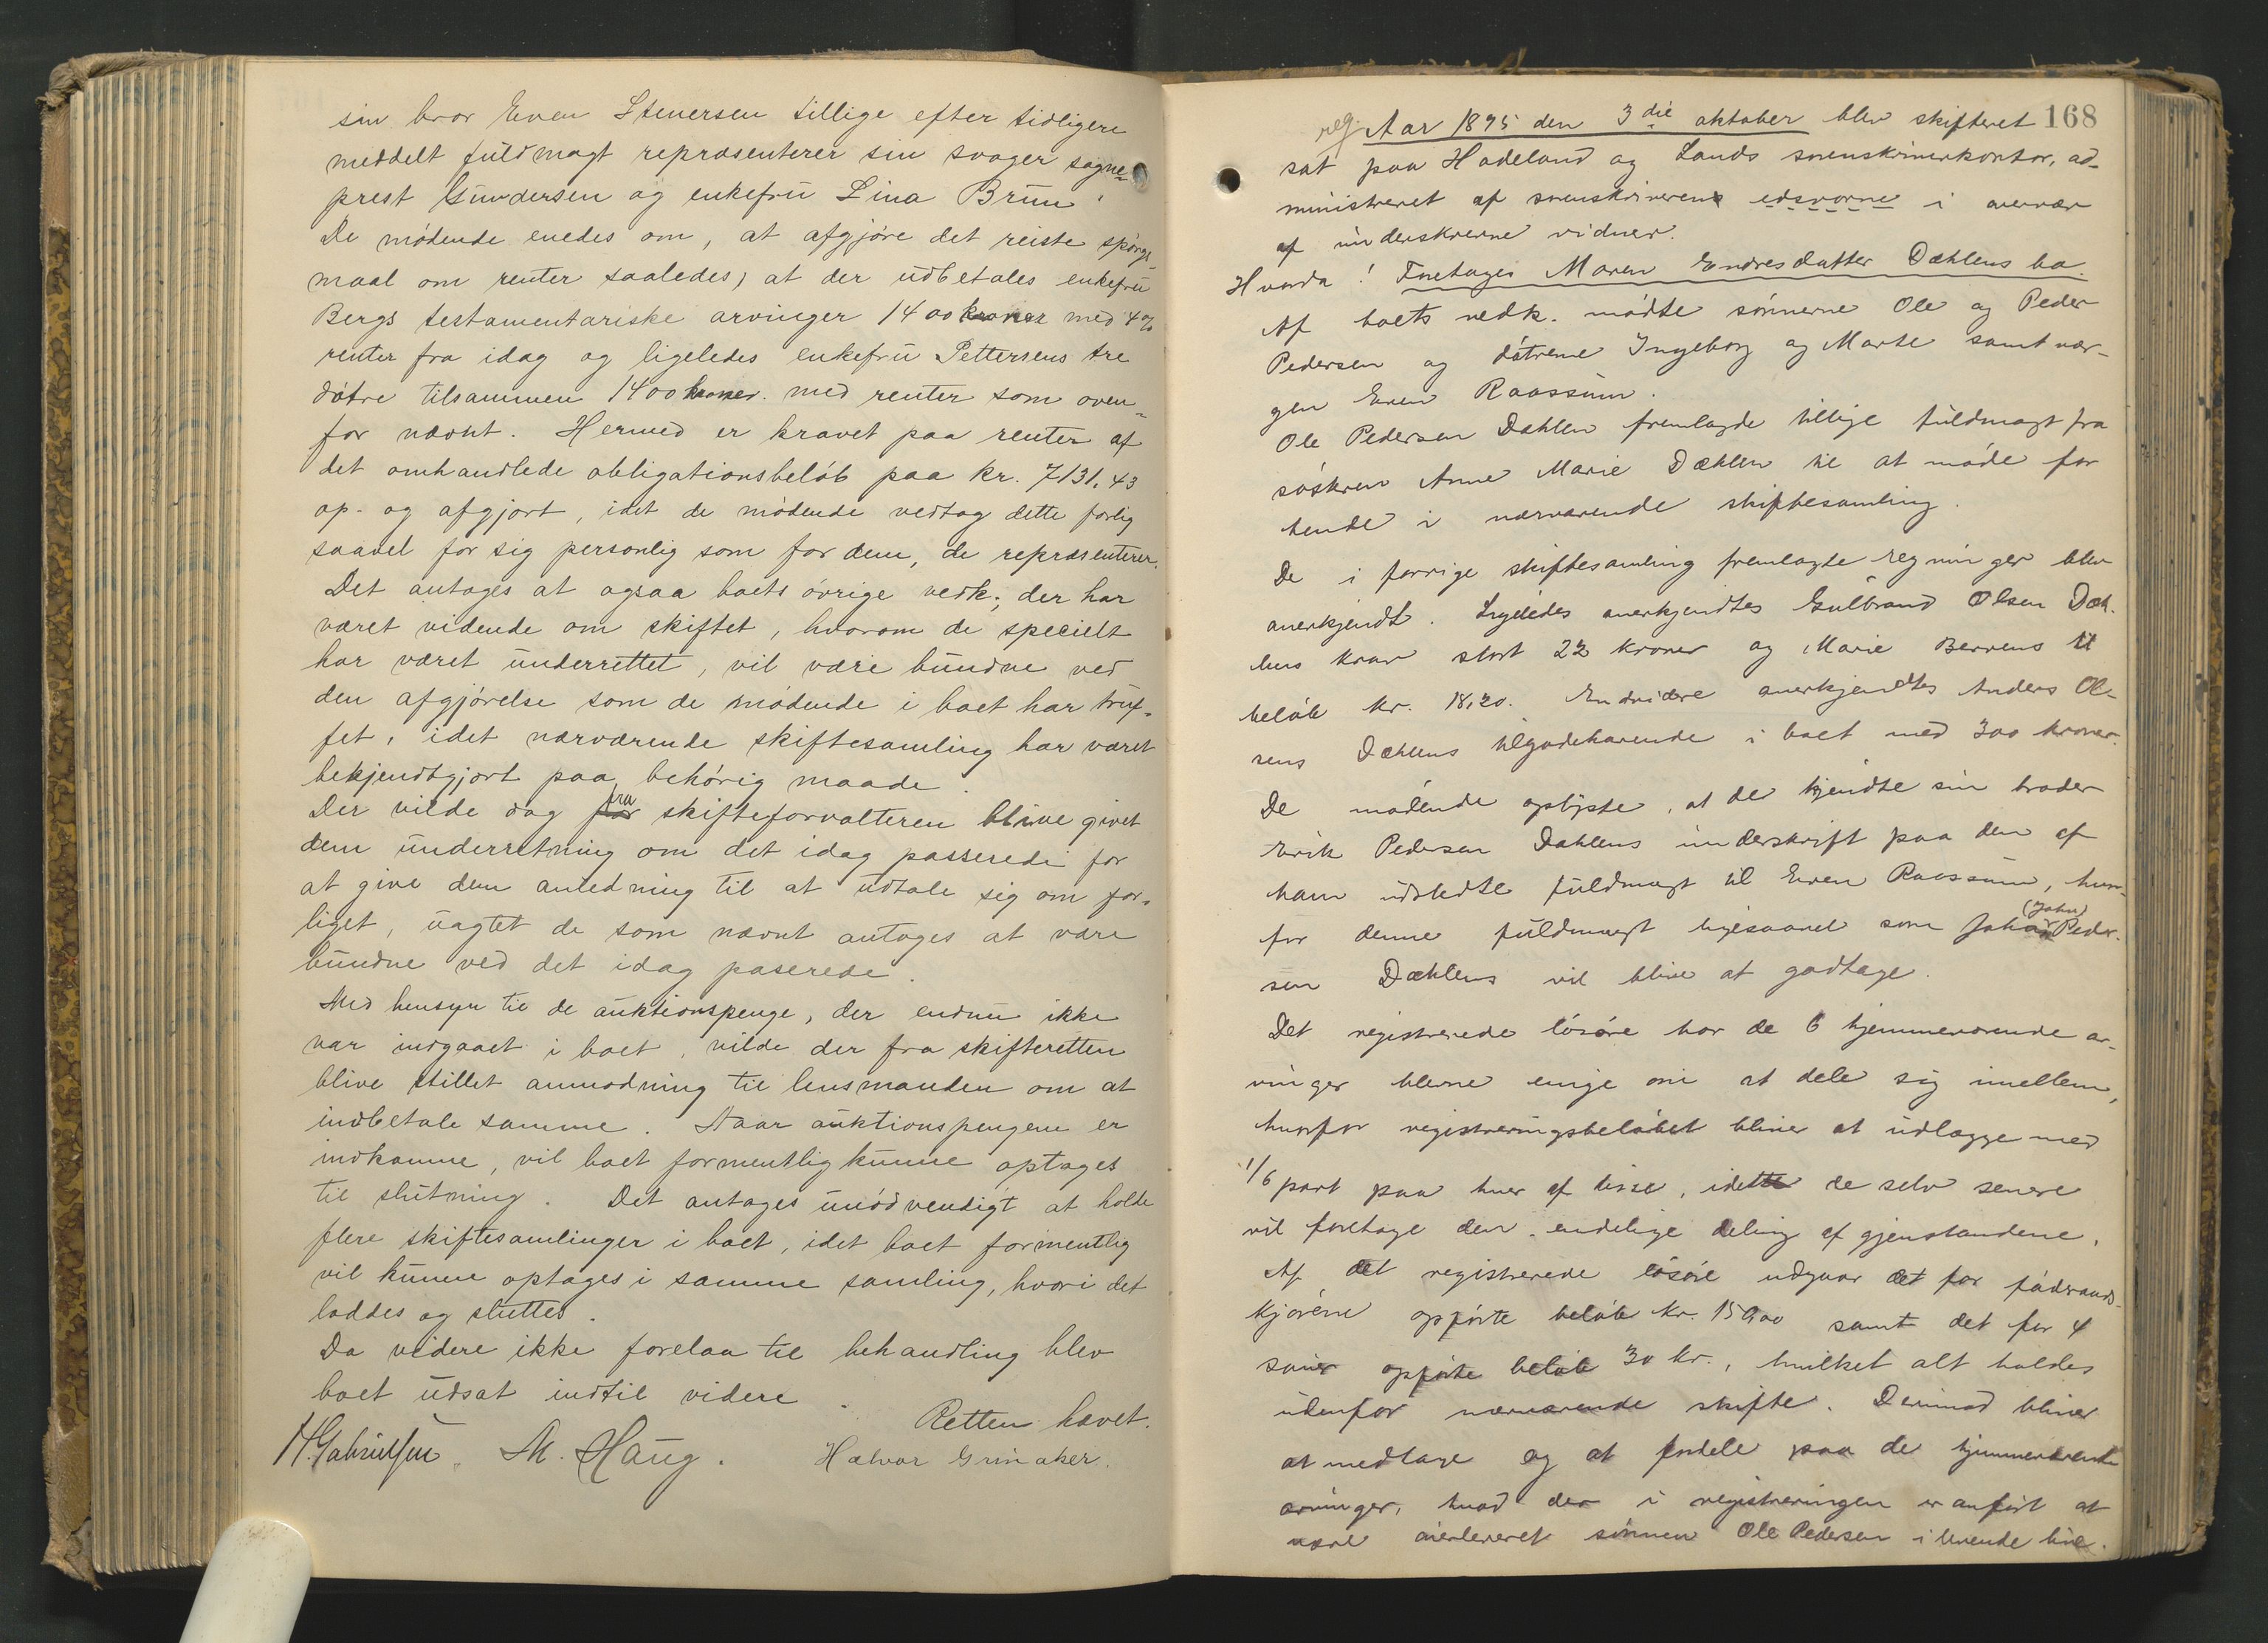 sin bror Even Stenersen tillige efter tidligere
meddelt fuldmagt repræsenterer sin svoger sogne-
prest Gundersen og enkefru Lina Bruun.
De mödende enedes om, at afgjöre det reiste spörgs-
maal om renter saaledes, at der udbetales enkefru
Bergs testamentariske arvinger 1400 kroner med 4%
renter fra idag og ligeledes enkefru Pettersens tre
dötre tilsammen 1400 kroner med renter som oven-
for nævnt. Hermed er kravet paa renter af
det omhandlede obligationsbelöb paa kr. 7131.43
op- og afgjort, idet de mödende vedtog dette forlig
saavel for sig personlig som for dem, de repræsenterer.
Det antages at ogsaa boets övrige vedk., der har
været vidende om skiftet, hvorom de specielt
har været underrettet, vil være bundne ved
den afgjörelse som de mödende i boet har truf-
fet, idet nærværende skiftesamling har været
bekjendtgjort paa behörig maade.
Der vilde dog fra skifteforvalteren blive givet
dem underretning om det idag passerede for
at give dem anledning til at udtale sig om for-
liget, uagtet de som nævnt antages at være
bundne ved det idag paserede.
Med hensyn til de auktionspenge, der endnu ikke
var indgaaet i boet, vilde der fra skifteretten
blive stillet anmodning til lensmanden om at
indbetale samme. Naar auktionspengene er
indkomne, vil boet formentlig kunne optages
til slutning. Det antages unödvendigt at holde
flere skiftesamlinger i boet, idet boet formentlig
vil kunne optages i samme samling, hvori det
loddes og sluttes.
Da videre ikke forelaa til behandling blev
boet udsat indtil videre.
Retten hævet.
H. Gabrielsen. M. Haug. Halvor Grinaker.
168
reg. Aar 1895 den 3die oktober blev skifteret
sat paa Hadeland og Lands sorenskriverkontor, ad-
ministreret af sorenskriverens edsvorne i overvær
af underskrevne vidner.
Hvorda! Foretages Maren Endresdatter Dæhlens bo.
Af boets vedk. mödte sönnerne Ole og Peder
Pedersen og dötrene Ingeborg og Marte samt vær-
gen Even Raassum.
Ole Pedersen Dæhlen fremlagde tillige fuldmagt fra
söskren Anne Marie Dæhlen til at möde for
hende i nærværende skiftesamling.
De i forrige skiftesamling fremlagte regninger blev
anerkjendt. Ligeledes anerkjendtes Gulbrand Olsen Dæh-
lens krav stort 22 kroner og Marie til
belöb kr. 18,20. Endvidere anerkjendtes Anders Ol-
sens Dæhlens tilgodehavende i boet med 300 kroner.
De mödende oplyste, at de kjendte sin broder
Erik Pedersen Dahlens underskrift paa den af
ham udstedte fuldmagt til Even Raassum, hvor-
for denne fuldmagt ligesaavel som Johan (John) Peder-
sen Dæhlens vil blive at godtage.
Det registrerede lösöre har de 6 hjemmeværende ar-
vinger blevne enige om at dele sig imellem,
hvorfor registreringsbelöbet bliver at udlægge med
1/6 part paa hver af disse, idet de selv senere
vil foretage den endelige deling af gjenstandene.
Af det registrerede lösöre udgaar det for föderaads-
kjörene opförte belöb kr. 159,00 samt det for 4
sauer opförte belöb 30 kr., hvilket alt holdes
udenfor nærværende skifte. Derimod bliver
at medtage og at fordele paa de hjemmeværende
arvinger, hvad der i registreringen er anfört at
være overleveret sönnen Ole Pedersen i levende live.